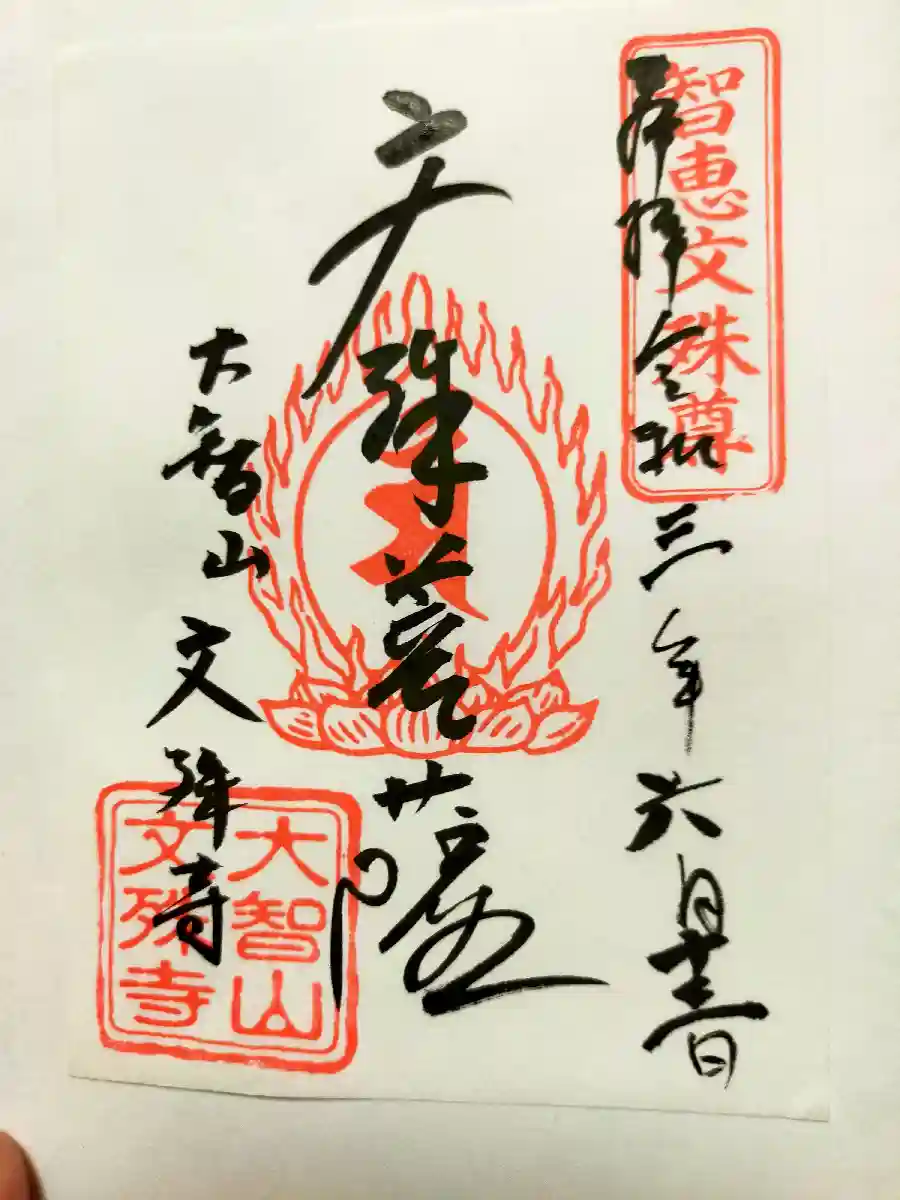 智恵文殊尊
奉拝 令和三年六月 日
文殊菩薩
大智山 文殊寺
大智山
文殊寺